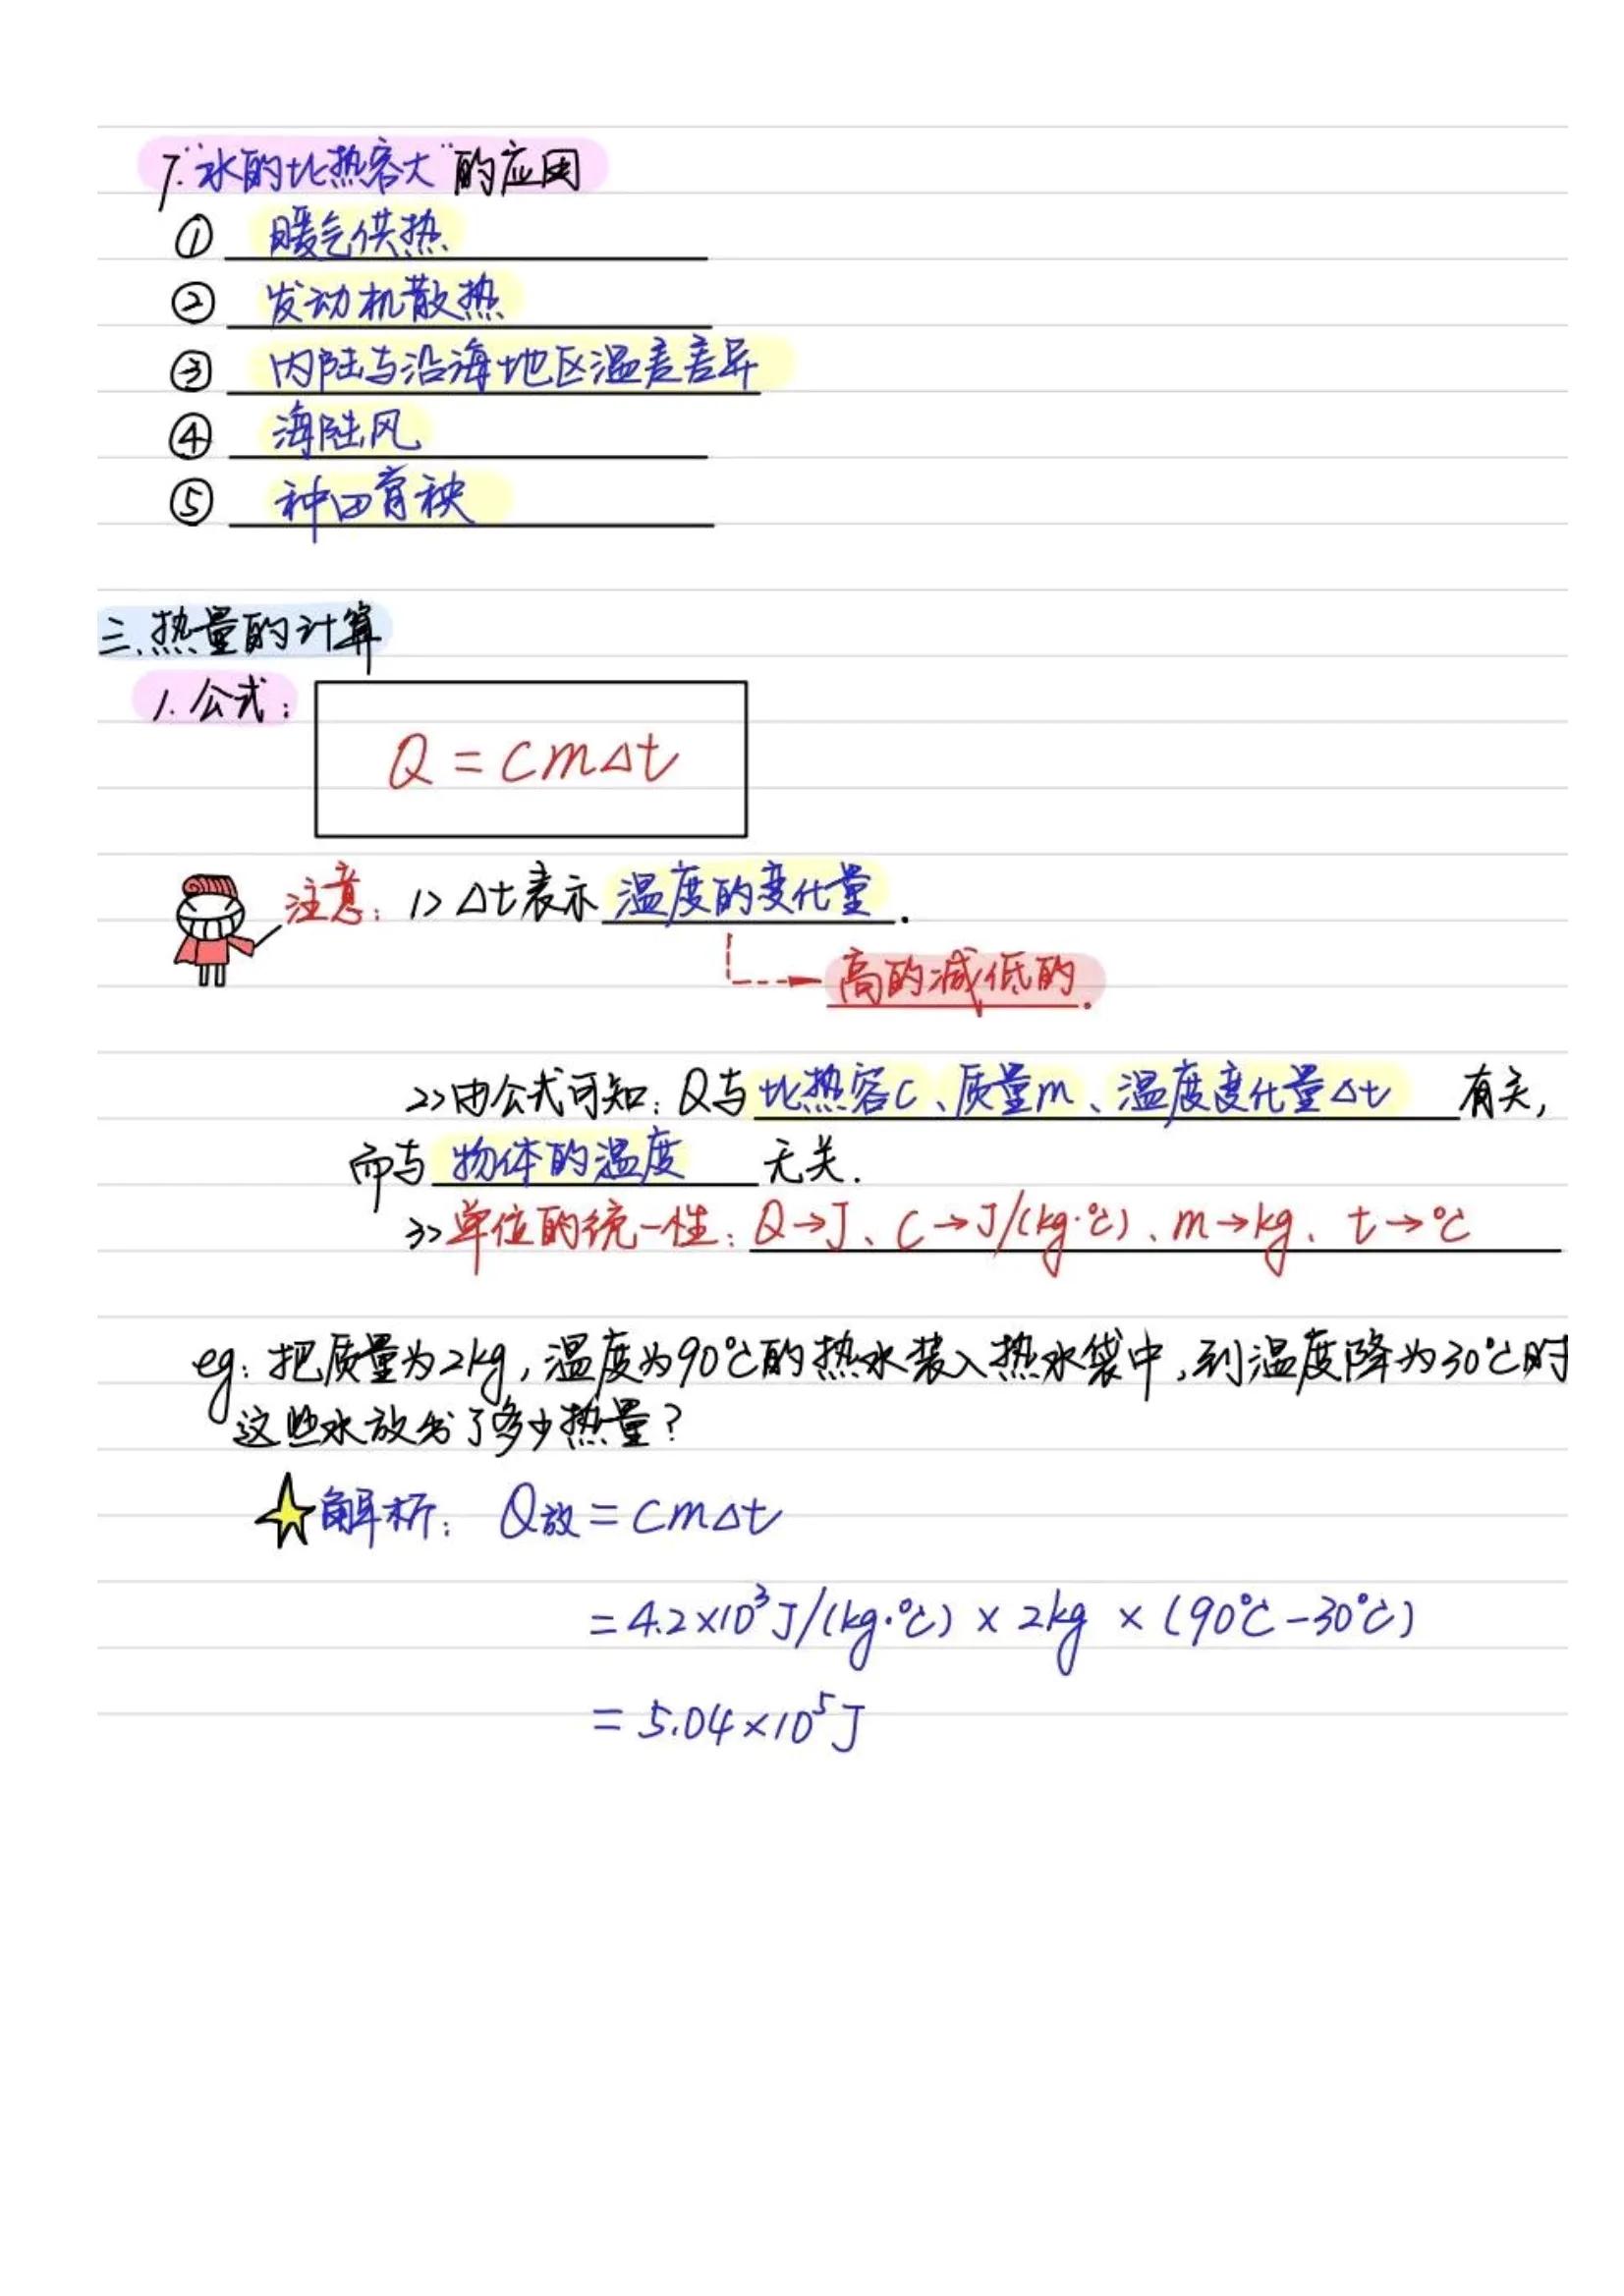 7.“水的比热容大”的应用
① 暖气供热
② 发动机散热
③ 内陆与沿海地区温差差异
④ 海陆风
⑤ 种田育秧
三、热量的计算
1. 公式：
Q = cm△t
注意：1> △t表示 温度的变化量.
高的减低的.
2> 由公式可知：Q与比热容c、质量m、温度变化量△t 有关,
而与 物体的温度 无关.
3> 单位的统一性：Q→J、c→J/(kg·℃)、m→kg、t→℃
eg：把质量为2kg,温度为90℃的热水装入热水袋中,到温度降为30℃时
这些水放出了多少热量?
解析：Q放 = cm△t
= 4.2×10³J/(kg·℃) × 2kg × (90℃-30℃)
= 5.04×10⁵J